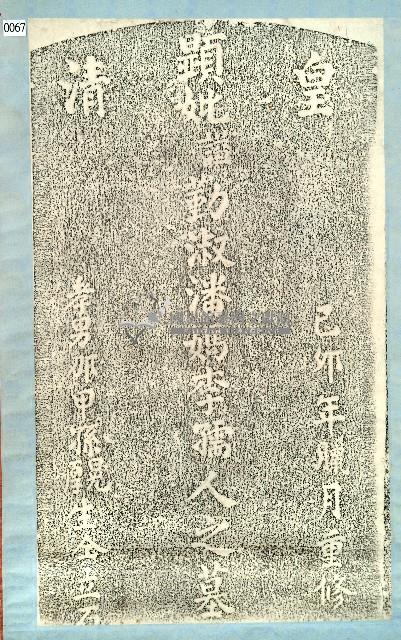 0067
皇
清
己卯年臘月重修
顯妣諡勤淑潘媽李孺人之墓
孝男 甲孫 生仝立石